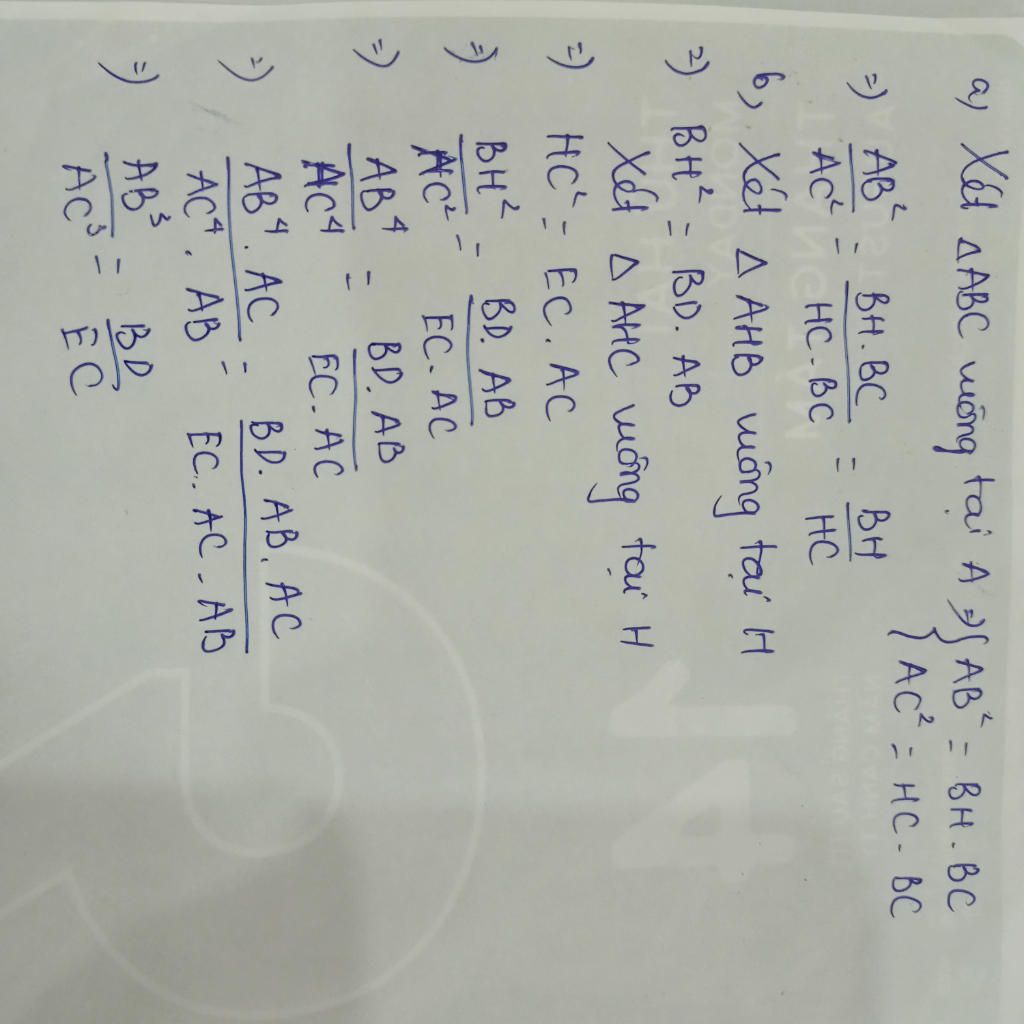 a) Xét △ABC vuông tại A => { AB² = BH.BC
AC² = HC.BC
=> AB²/AC² = BH.BC/HC.BC = BH/HC
b, Xét △AHB vuông tại H
=) BH² = BD.AB
Xét △AHC vuông tại H
=) HC² = EC.AC
=) BH²/HC² = BD.AB/EC.AC
=) AB⁴/AC⁴ = BD.AB/EC.AC
=) AB⁴.AC/AC⁴.AB = BD.AB.AC/EC.AC.AB
=) AB³/AC³ = BD/EC
14